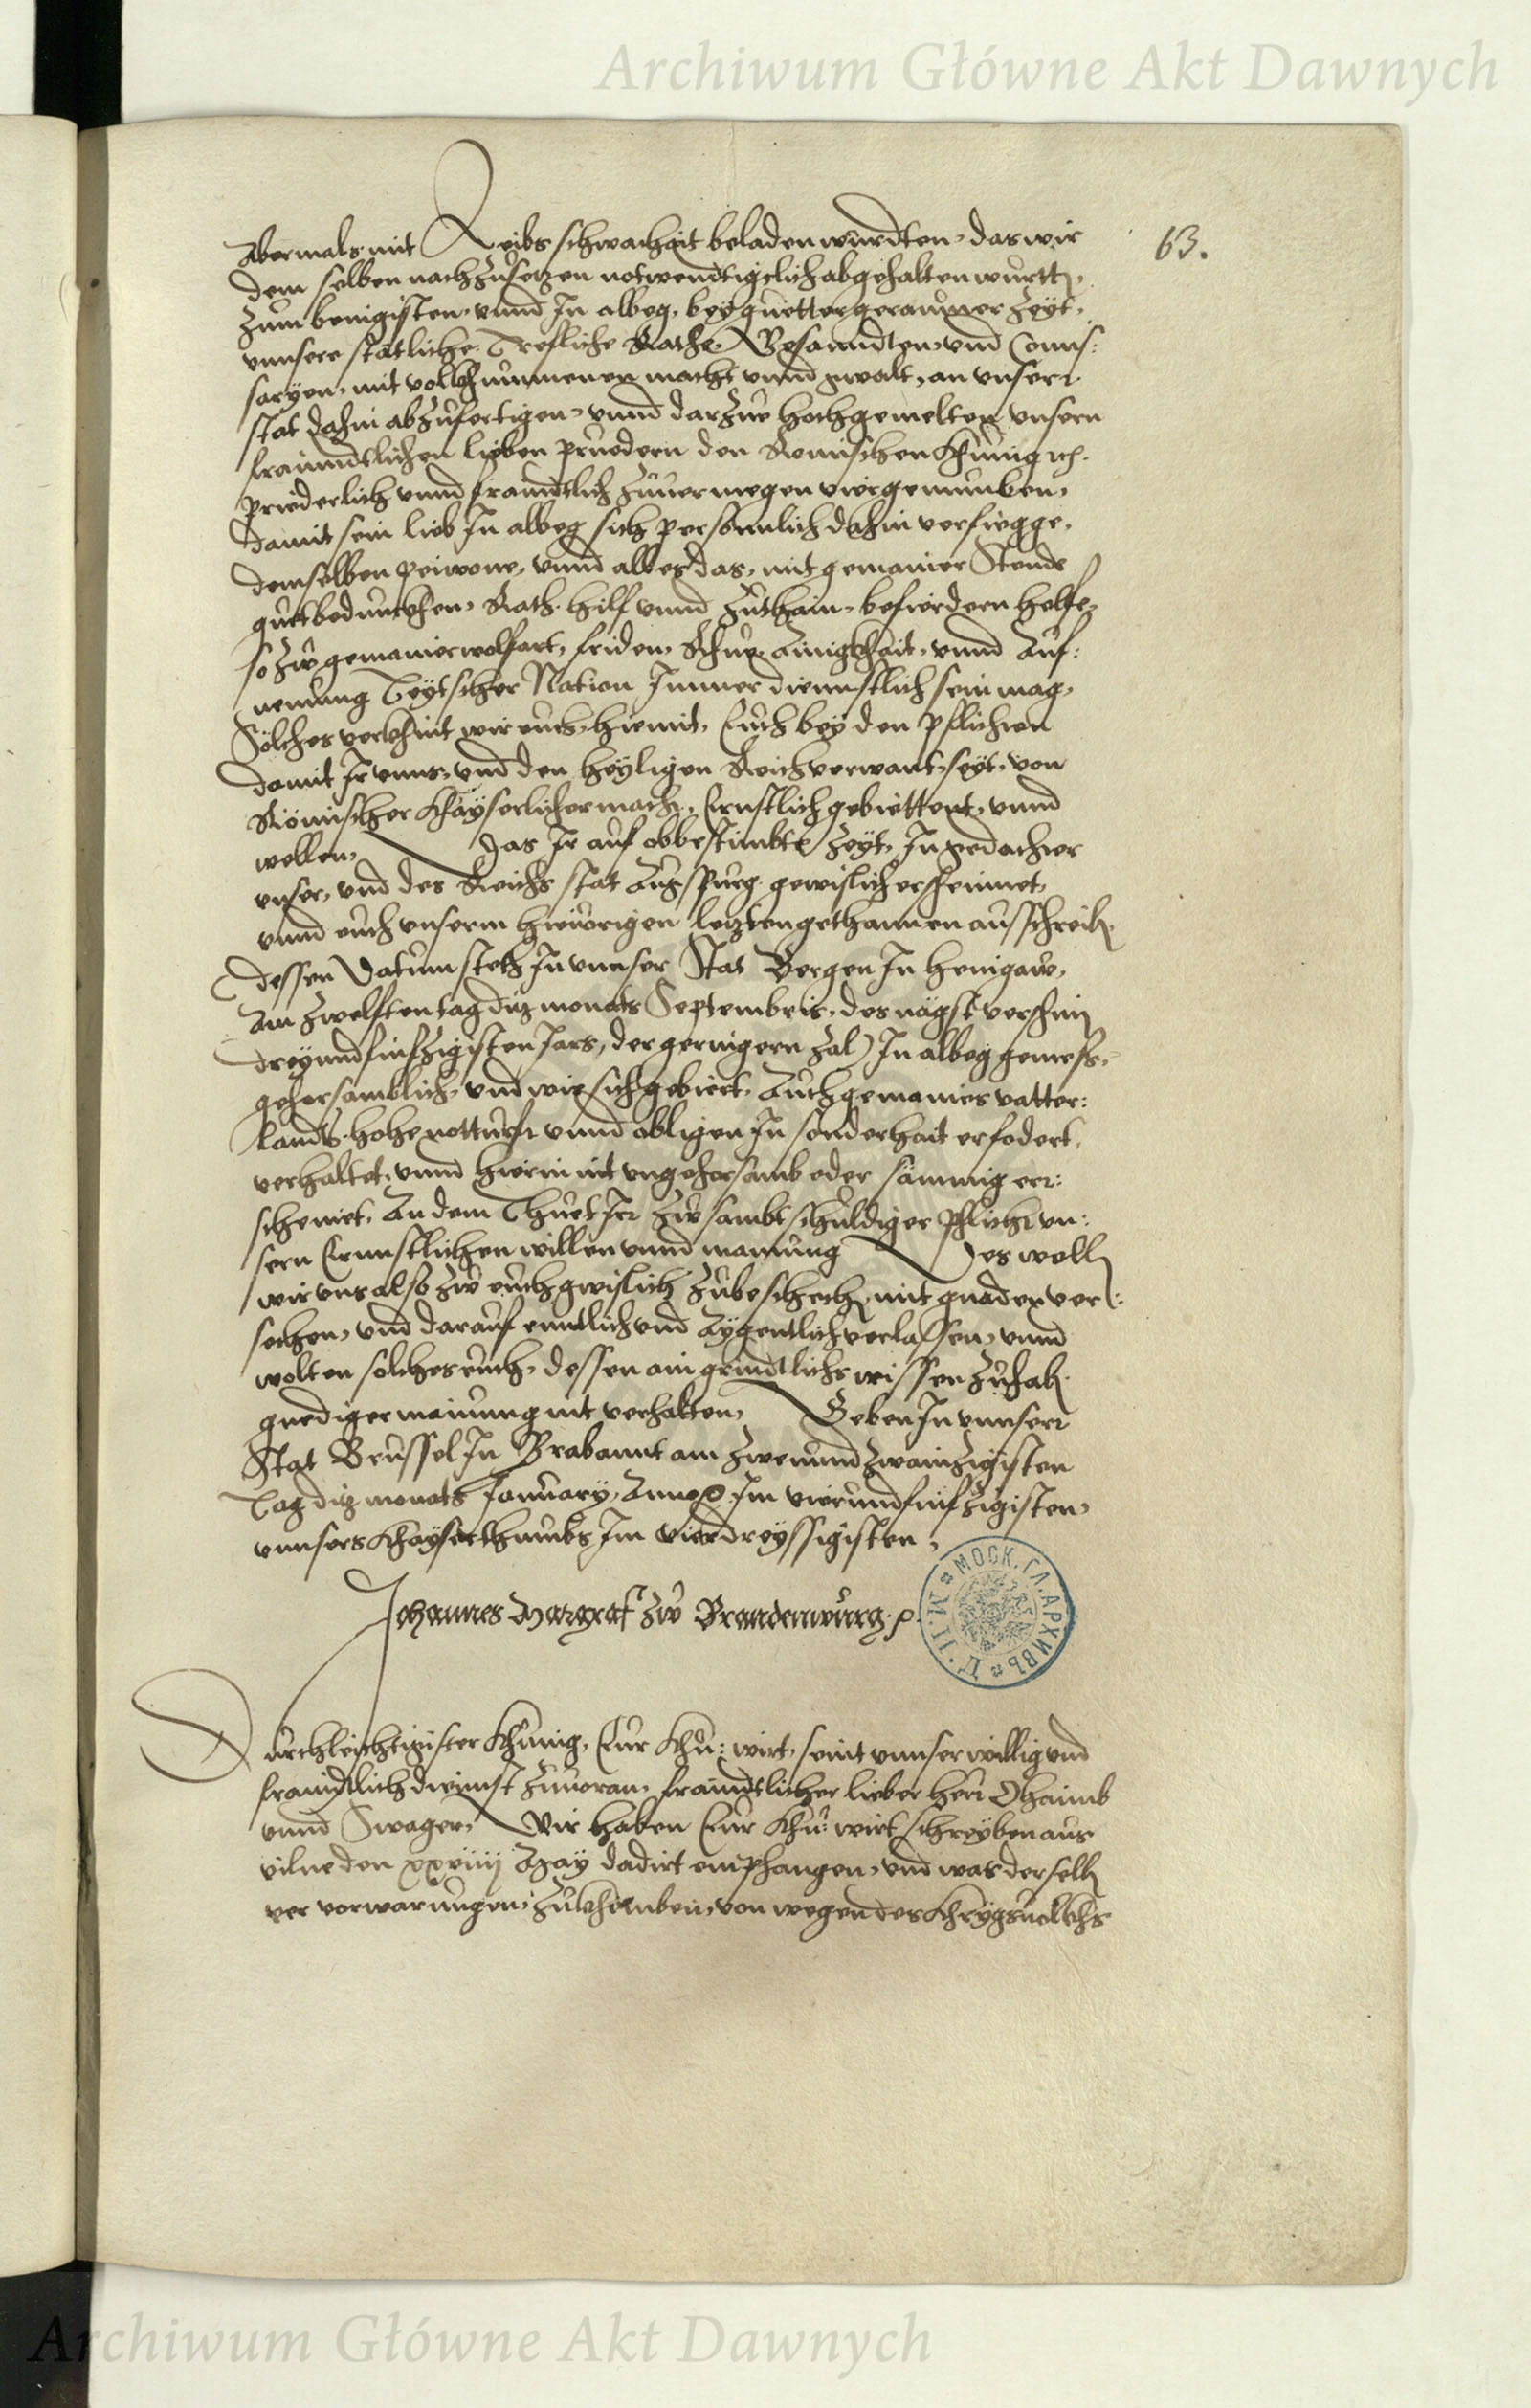 Archiwum Główne Akt Dawnych
63.
Abermals mit Leibs schwachait beladen wurdten, das wir
dem selben nachzusetzen notwendtigelich abgehalten wurtt,
zum wenigisten, unnd In albeg, bey guetter geraumer Zeyt,
unnsere statliche Trefliche Rathe, Gesanndten, und Comis:
saryen, mit volkhummenen macht unnd gwalt, an unser
stat dahin abzufertigen, unnd darzue hochgemelten unsern
fraundtlichen lieben pruedern den Romischen Khunig rc.
priederlich unnd fraindtlich zuvermegen viergenumben,
damit sein lieb In albeg sich personnlich dahin verfuegge,
demselben peiwone, unnd alles das, mit gemainer Stende
guetbedunckhen, Rath, hilf unnd zuthain, befierdern helfe,
so zw gemainer wolfart, friden, Rhue, Ainigkhait, unnd Auf:
nemung Teytscher Nation Immer dienstlich sein mag,
Solches verkhint wir euch, hiemit, Euch bey den pflichten
damit Ir unns, und den heyligen Reich verwant seyt, von
Römischer Khayserlicher macht, Ernstlich gebiettent, unnd
wellen, Das Ir auf obbestimbte Zeyt, In gedachter
unser, und des Reichs stat Augspurg gewislich erscheinnet,
unnd euch unserm hievorigen letzten gethannen ausschreib,
dessen Datum steth In unnser Stat Bergen In Henigaw,
Am zwelften tag ditz monats Septembris, des nägst verschin
dreyundfinfzigisten Jars, der geringern Zal) In albeg gemess,
gehorsamblich, und wie sich gebiert, Auch gemaines vatter:
lands hohe notturft unnd obligen In sonderhait erfodert,
verhaltet, unnd hierin nit ungehorsamb oder saumig err:
scheinet, An dem Thuet Ir zw sambt schuldiger Pflicht un:
sern Ernnstlichen willen unnd mainung Des woll
wir uns also zw euch gwislich zubeschech, mit gnaden ver:
sechen, und darauf enntlich und Aygentlich verlassen, unnd
wolten solches euch, dessen ain grindtlichs wissen zuhab,
gnediger mainung nit verhalten, Geben In unnser
Stat Brussel In Brabannt am zwenundzwainzigisten
Tag ditz monats January, Anno rc. Im vierundfinfzigisten,
unnsers Khayserthumbs Im vierdreyssigisten,
Johannes Margraf zw Brandenwurg. rc.
МОСК. ГЛ. АРХИВЪ
Durchleichtigister Khunig, Eur Khu: wirt, seint unnser willig und
fraindtlich dienst zuvoran, fraindtlicher lieber herr Ohaimb
unnd Swager, Wir haben Eur Khu: wirt schreyben aus
vilne den xxviiij May dadirt emphangen, und was derselb
ver vorwarungen, zukhomben, von wegen des Khrygsvolkhs
Archiwum Główne Akt Dawnych